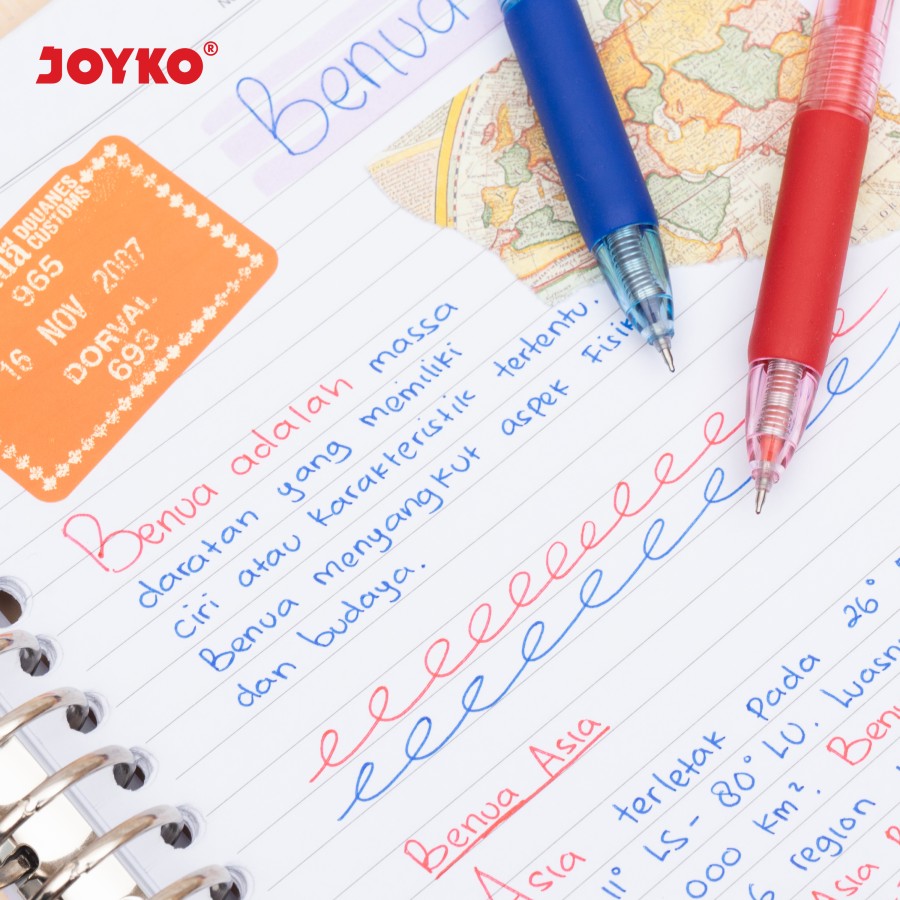 JOYKO®
Benua
DOUANES
CUSTOMS
965
16 NOV 2007
DORVAL
693
Benua adalah massa
daratan yang memiliki
ciri atau karakteristik tertentu.
Benua menyangkut aspek Fisik
dan budaya.
Benua Asia
Asia terletak Pada 26°
11° LS - 80° LU. Luasn
000 km². Benu
6 region
Asia